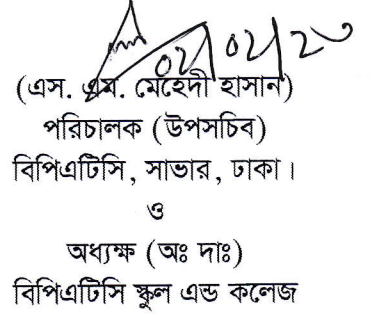 ০২/০২/২৩
(এস. এম. মেহেদী হাসান)
পরিচালক (উপসচিব)
বিপিএটিসি, সাভার, ঢাকা।
ও
অধ্যক্ষ (অঃ দাঃ)
বিপিএটিসি স্কুল এন্ড কলেজ